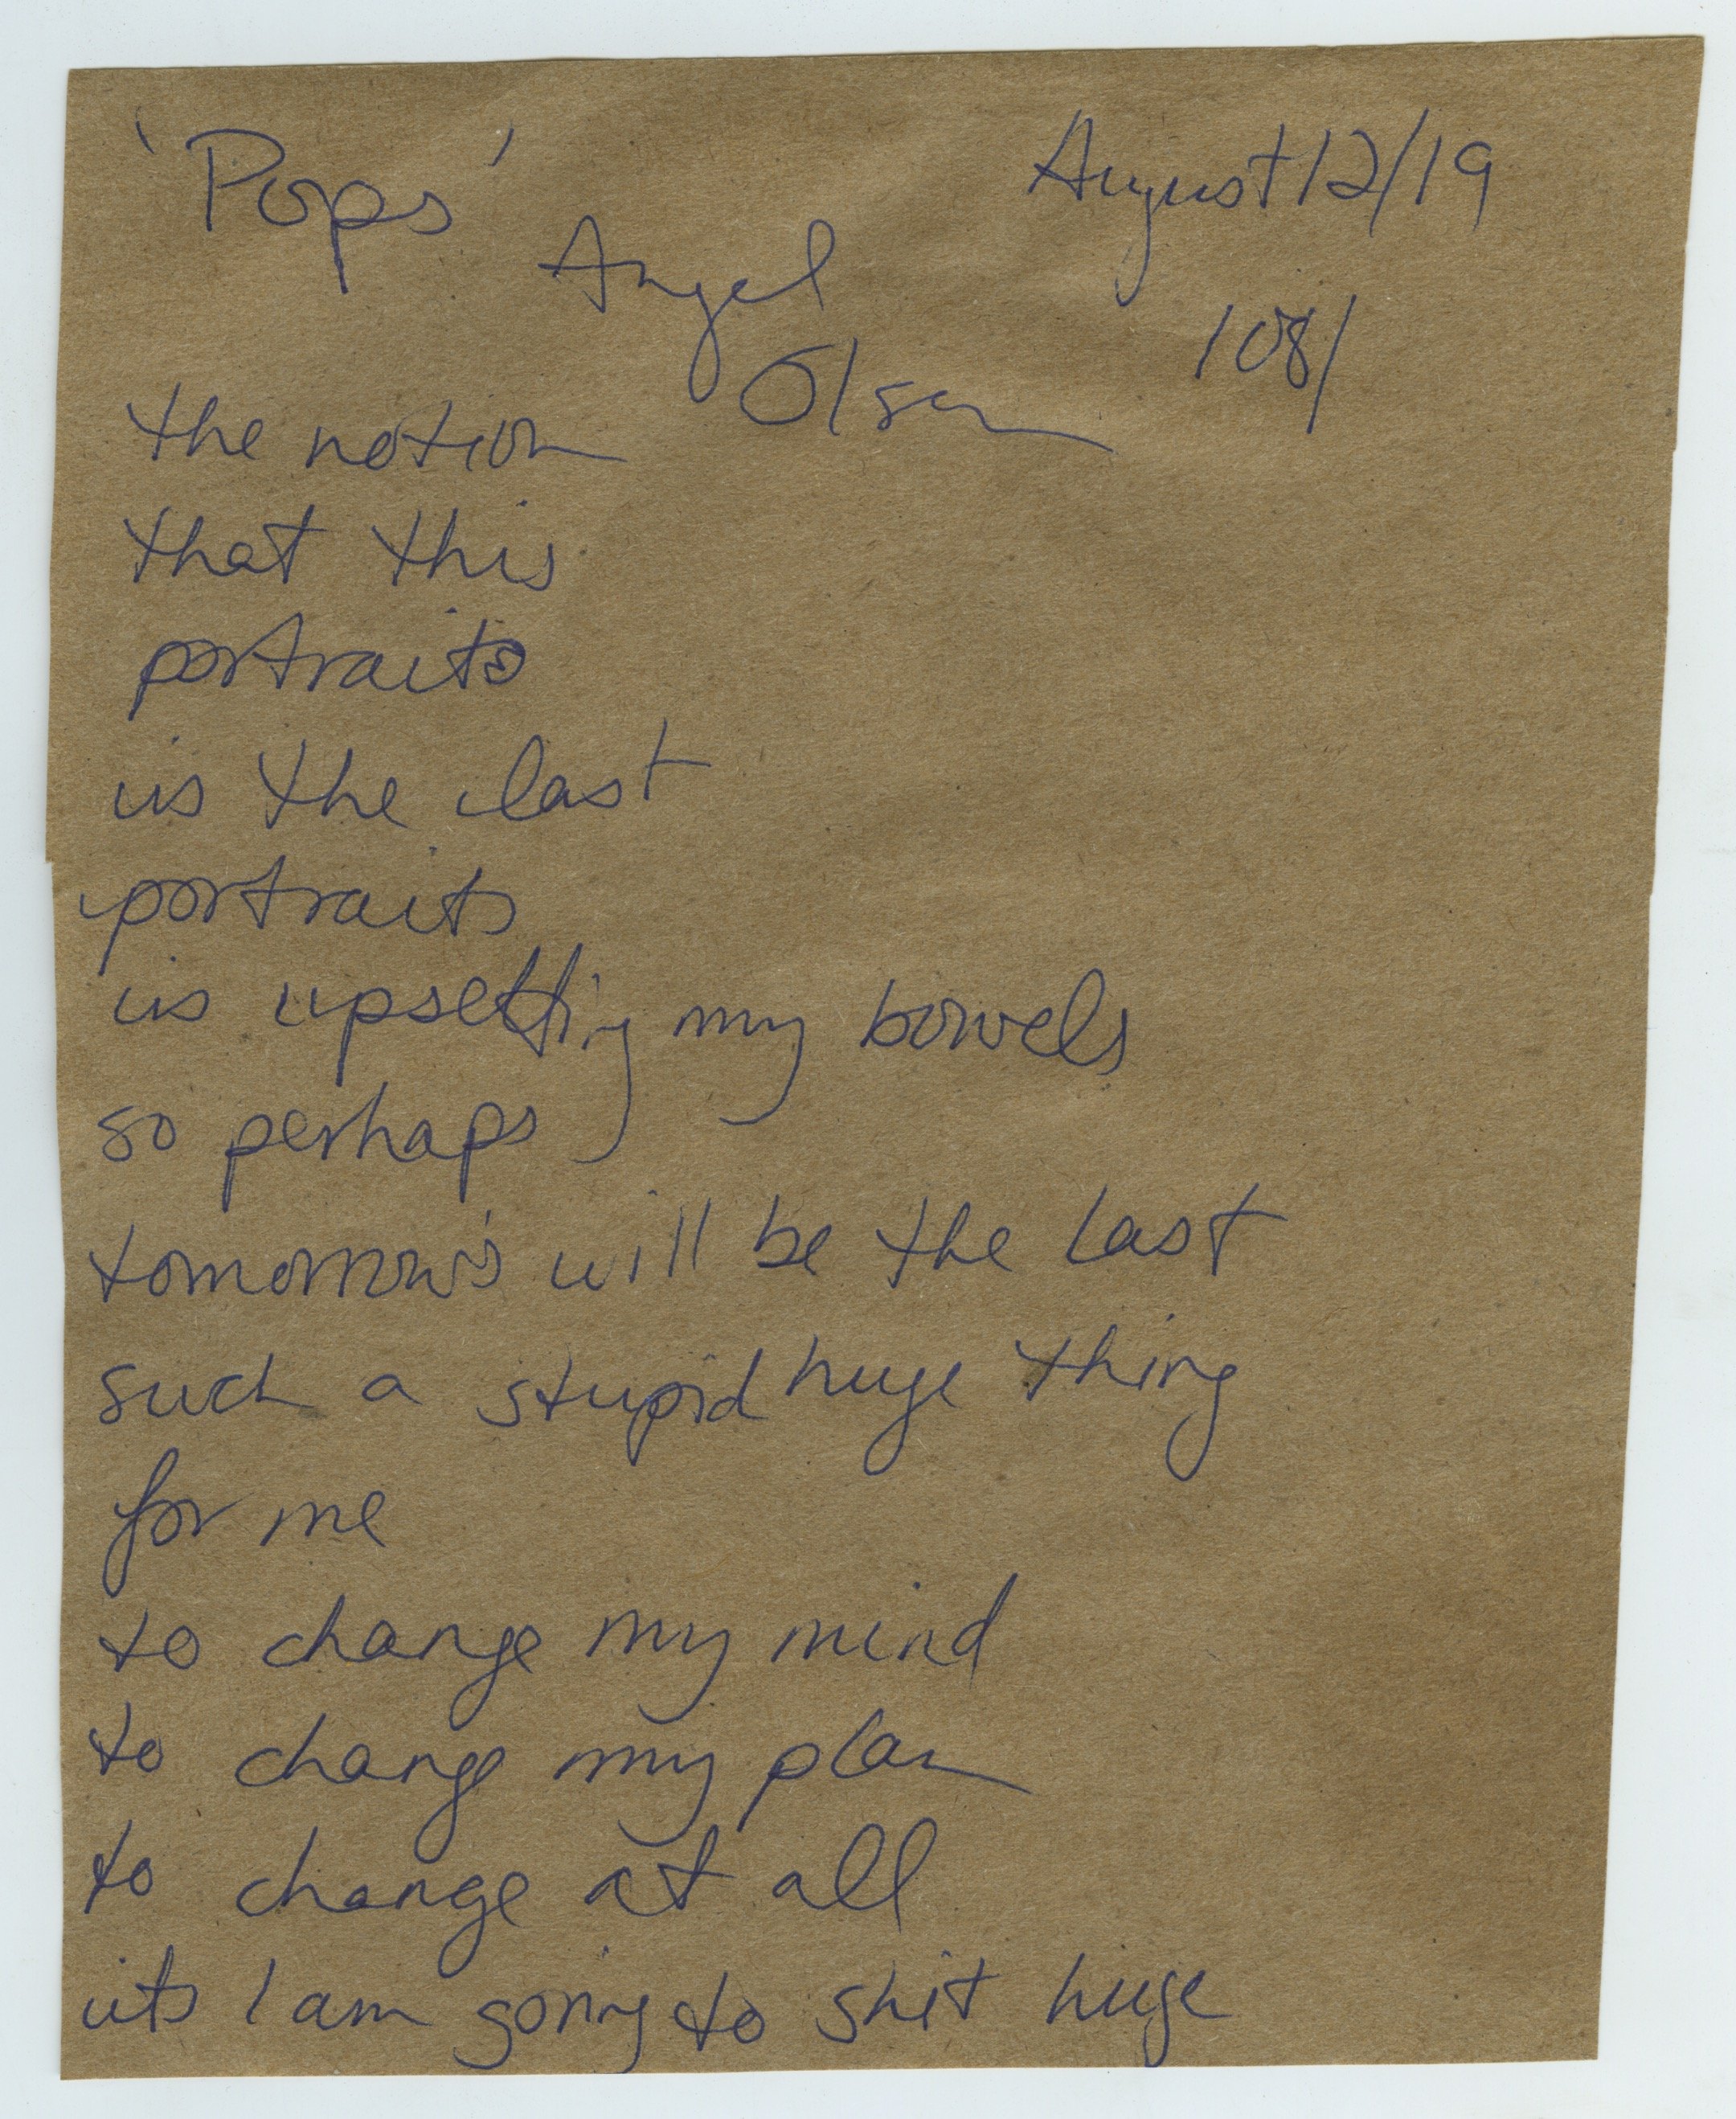 'Pops' August 12/19
Angel 108/
Olsen
the notion
that this
portraits
is the last
portraits
is upsetting my bowels
so perhaps
tomorrow's will be the last
such a stupid huge thing
for me
to change my mind
to change my plan
to change at all
its I am going to shit huge